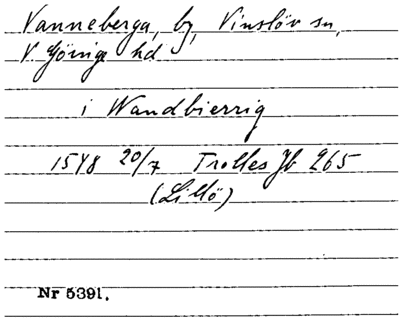 Vanneberga, by, Vinslöv sn,
V. Göinge hd
i Wandbierrig
1548 20/7 Trolles Jb 265
(Lillö)
Nr 5391.